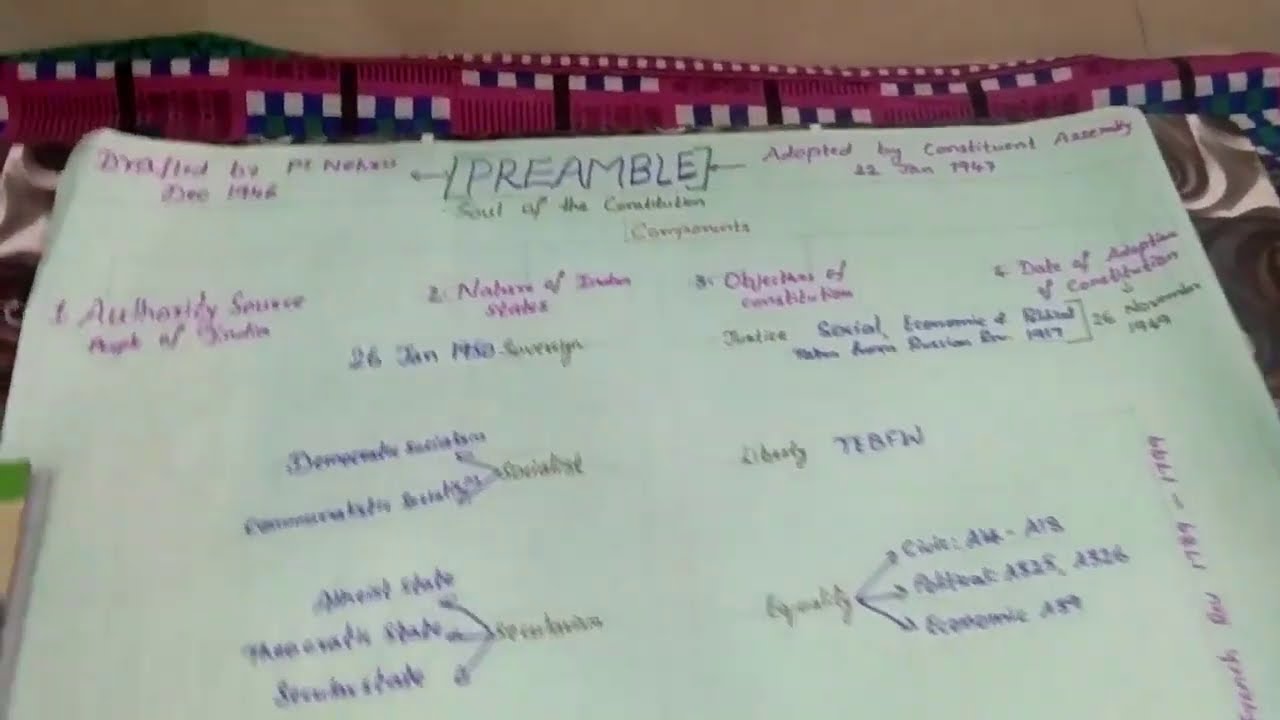 Drafted by Pt Nehru
Dec 1946
[PREAMBLE]
Soul of the Constitution
Adopted by Constituent Assembly
22 Jan 1947
Components
1. Authority Source
People of India
2. Nature of Indian
States
3. Objectives of
constitution
4. Date of Adoption
of Constitution
26 November
1949
26 Jan 1950 - Sovereign
Justice Social, Economic &
Taken from Russian Rev. 1917
Democratic socialism
Socialist
Liberty TEBFW
Atheist State
Theocratic State
Secular state
Equality
Civic: A14 - A18
Political: A325, A326
Economic A39
1789 - 1799